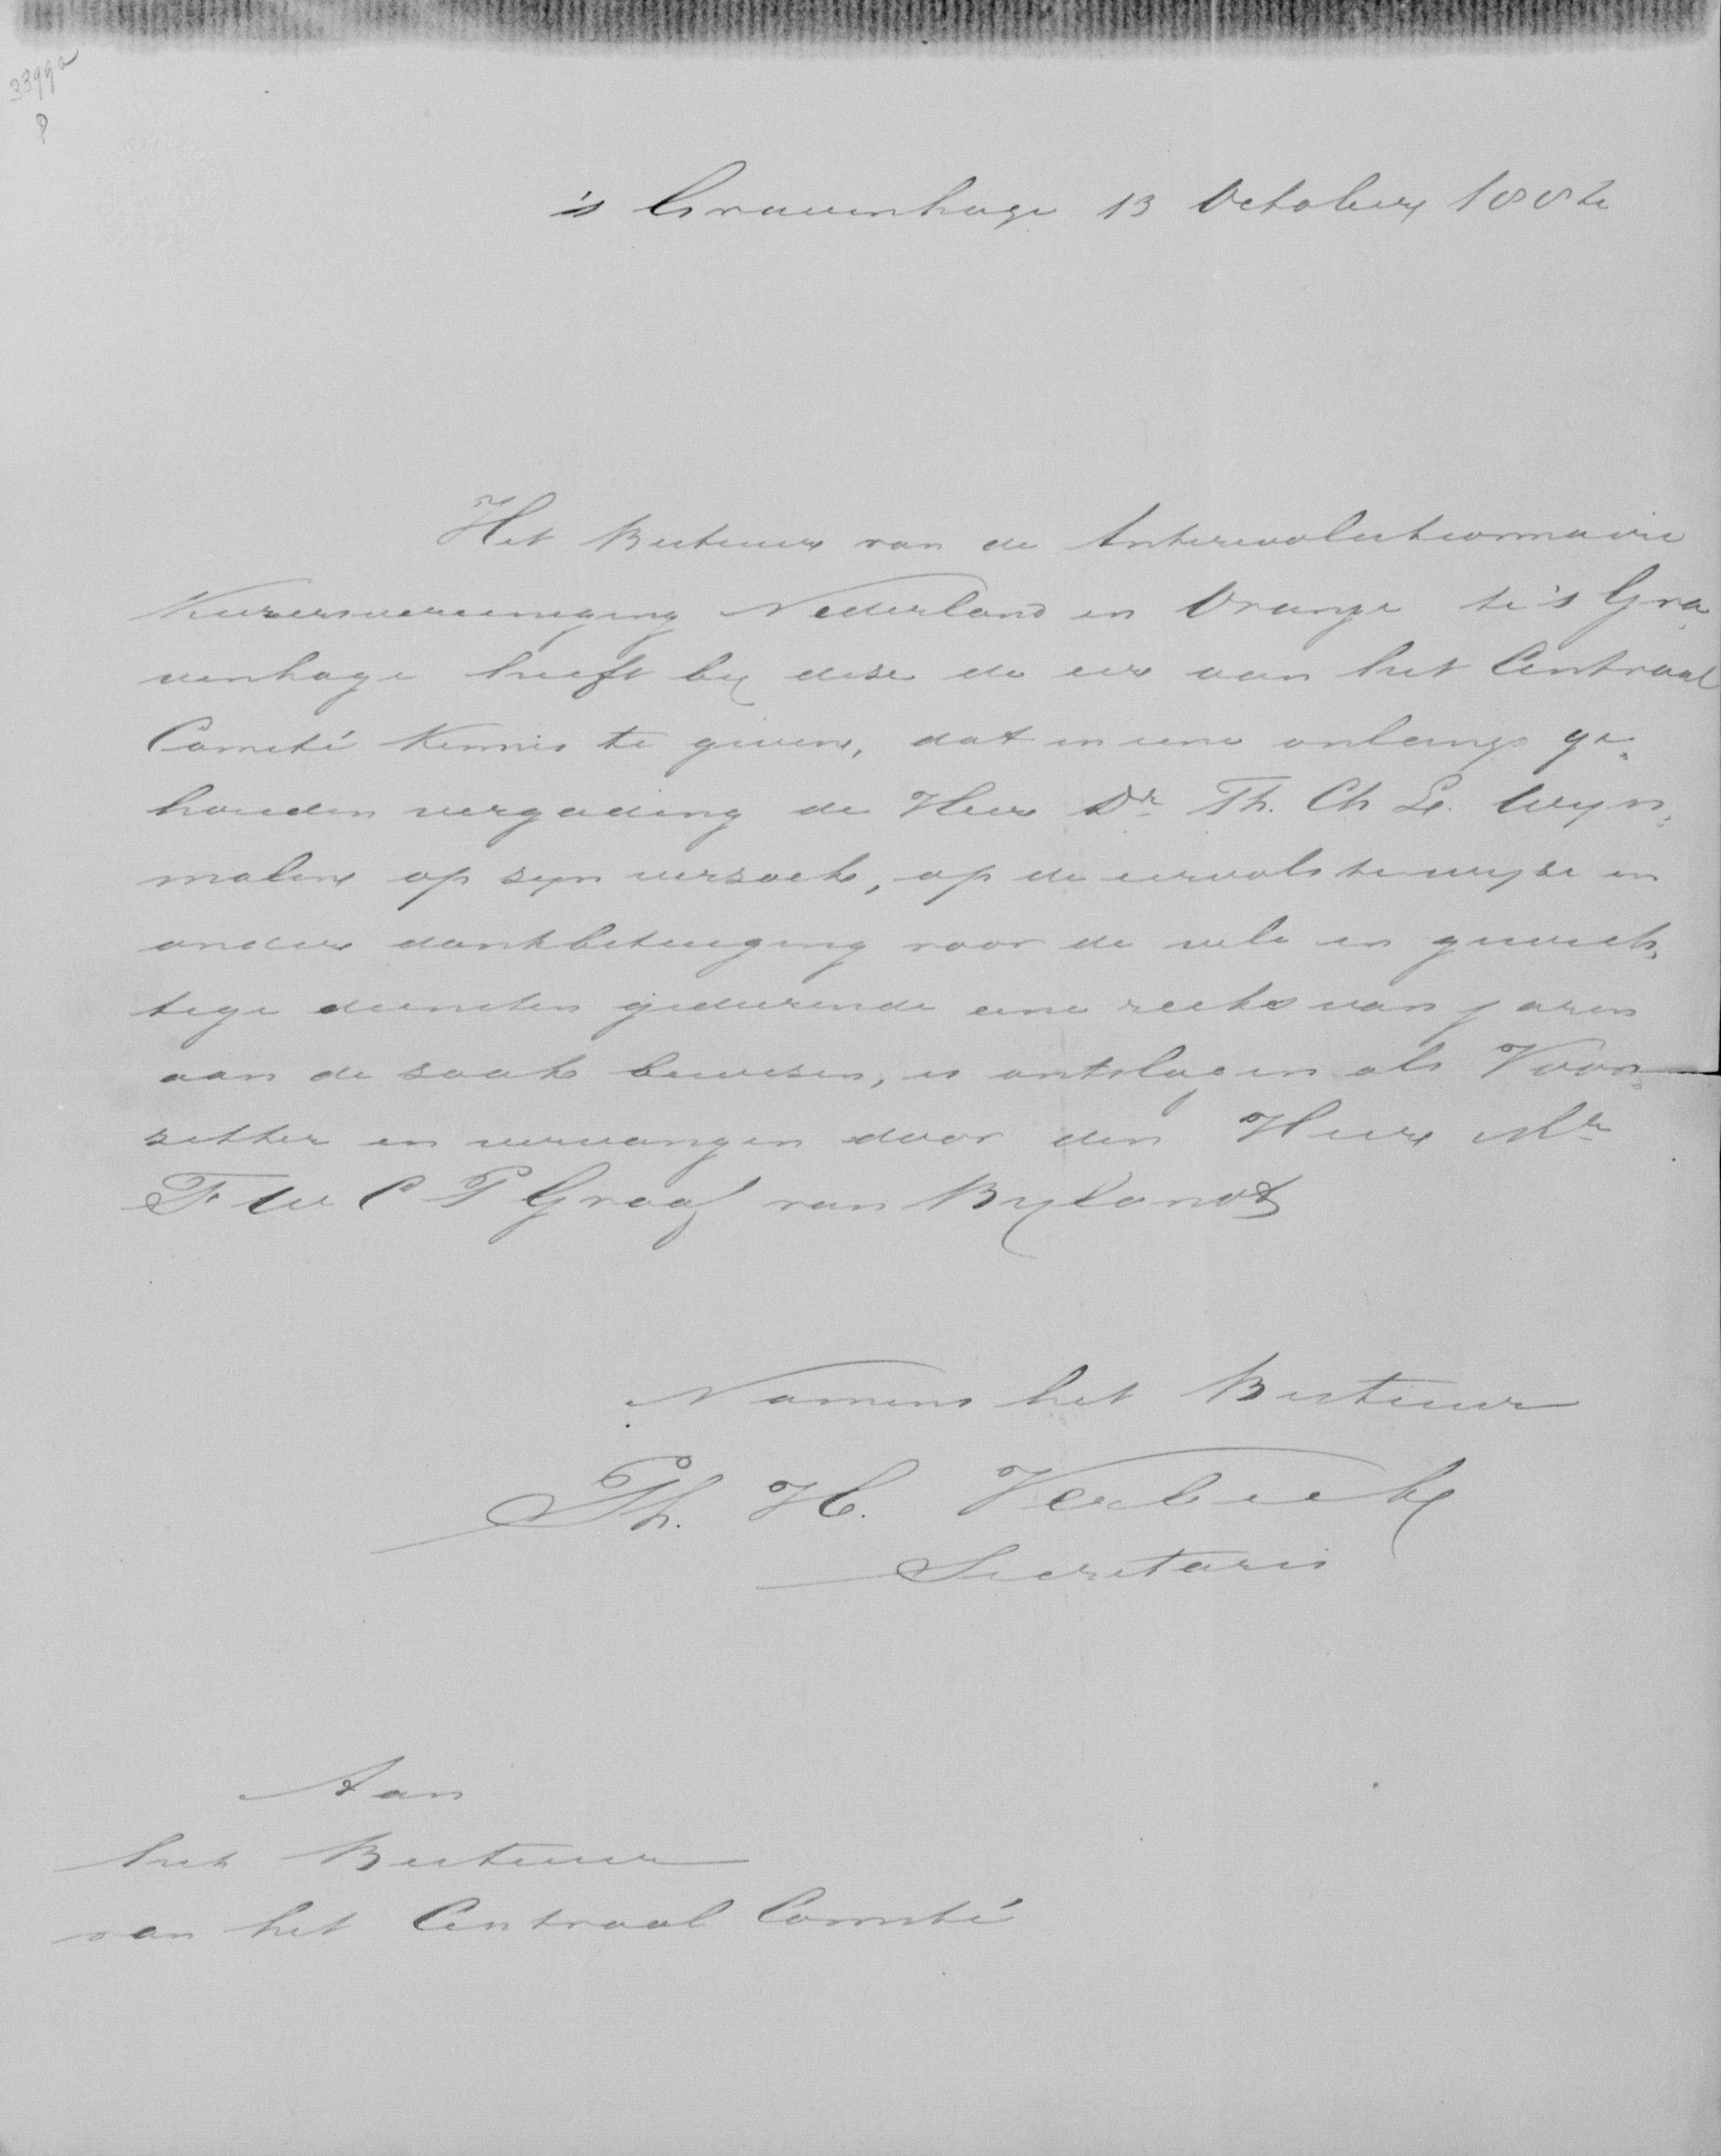 3399a
P
's Gravenhage 13 October 1882
Het Bestuur van de Antirevolutionnaire
Kiezersvereeniging Nederland en Oranje te 's Gra„
venhage heeft by deze de eer aan het Centraal
Comité kennis te geven, dat in eene onlangs ge„
houden vergadering de Heer Dr. Th. Ch L. Wyn„
malen op zyn verzoek, op de eervolste wyze en
onder dankbetuiging voor de vele en gewich„
tige diensten gedurende eene reeks van jaren
aan de zaak bewezen, is ontslagen als Voor„
zitter en vervangen door den Heer Mr
F W C P Graaf van Bylandt
Namens het Bestuur
Th. H. Verbeek
Secretaris
Aan
het Bestuur
van het Centraal Comité